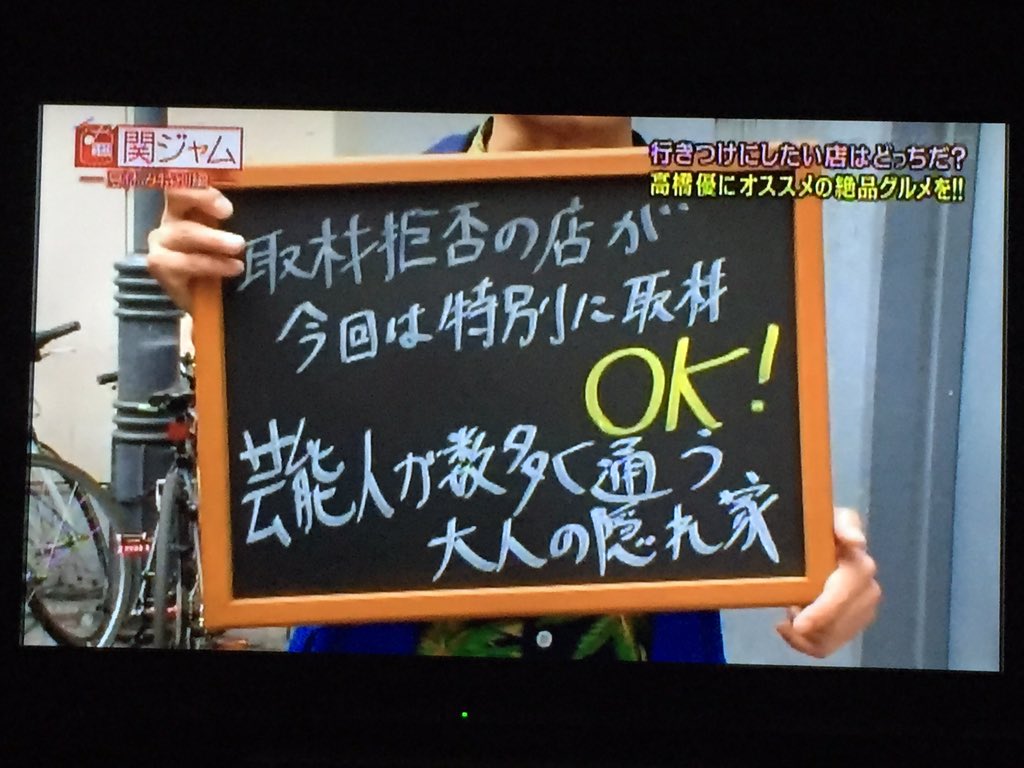 関ジャム
行きつけにしたい店はどっちだ?
高橋優にオススメの絶品グルメを!!
取材拒否の店が
今回は特別に取材
OK!
芸能人が数多く通う
大人の隠れ家